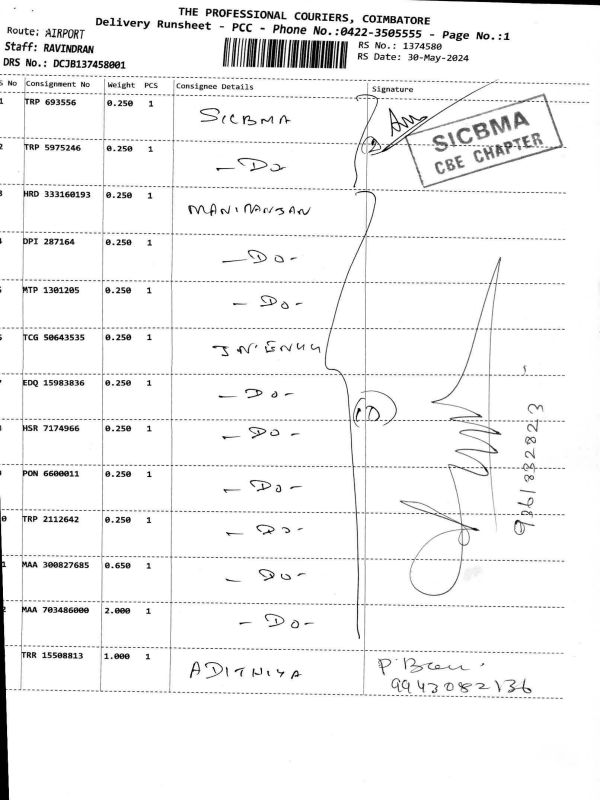 THE PROFESSIONAL COURIERS, COIMBATORE
Delivery Runsheet - PCC - Phone No.:0422-3505555 - Page No.:1
Route: AIRPORT
Staff: RAVINDRAN
DRS No.: DCJB137458001
RS No.: 1374580
RS Date: 30-May-2024
S No Consignment No Weight PCS Consignee Details Signature
1 TRP 693556 0.250 1 SICBMA
SICBMA
CBE CHAPTER
2 TRP 5975246 0.250 1 - Do
3 HRD 333160193 0.250 1 MANIMANJAN
4 DPI 287164 0.250 1 - Do -
5 MTP 1301205 0.250 1 - Do -
6 TCG 50643535 0.250 1
7 EDQ 15983836 0.250 1 - Do -
8 HSR 7174966 0.250 1 - Do -
9 PON 6600011 0.250 1 - Do -
0 TRP 2112642 0.250 1 - Do -
1 MAA 300827685 0.650 1 - Do -
2 MAA 703486000 2.000 1 - Do -
9361832823
TRR 15508813 1.000 1 ADITHIYA
9943082136